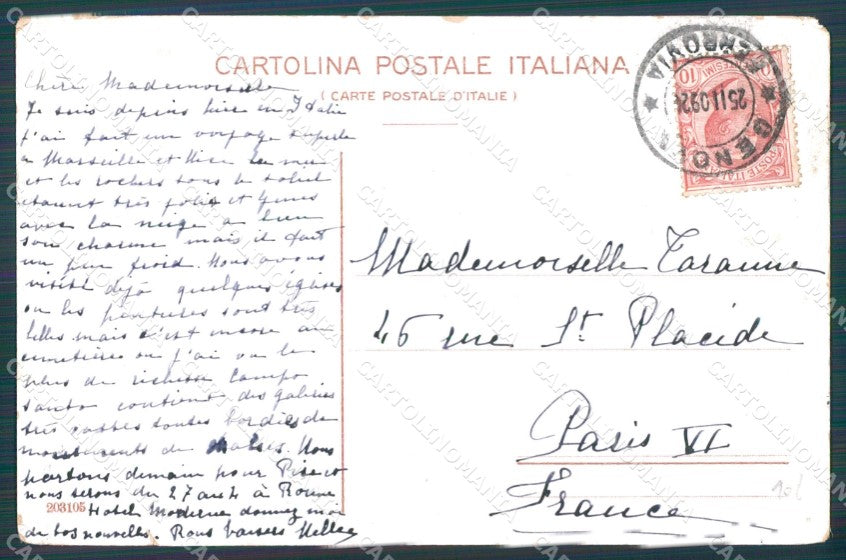 CARTOLINA POSTALE ITALIANA
( CARTE POSTALE D'ITALIE )
Chère Mademoiselle
Je suis depuis hier en Italie
j'ai fait un voyage superbe
a Marseille et Nice la mer
et les rochers sous le soleil
étaient très jolis et Genes
avec la neige a bien
son charme mais il fait
un peu froid. Nous avons
visité déjà quelques églises
ou les peintures sont très
belles mais c'est encore au
cimetière ou j'ai vu le
plus de richesse Campo
santo contient des galeries
très vastes toutes bordées de
monuments de Nous
partons demain pour Pise et
nous serons du 27 au 4 à Rome
203105 Hotel Moderne donnez moi
de vos nouvelles. Bons baisers
Mademoiselle Taranne
46 rue St Placide
Paris VI
France
GENOVA
FERROVIA
25 II 09 2
POSTE ITALIANE
10
CARTOLINOMANIA